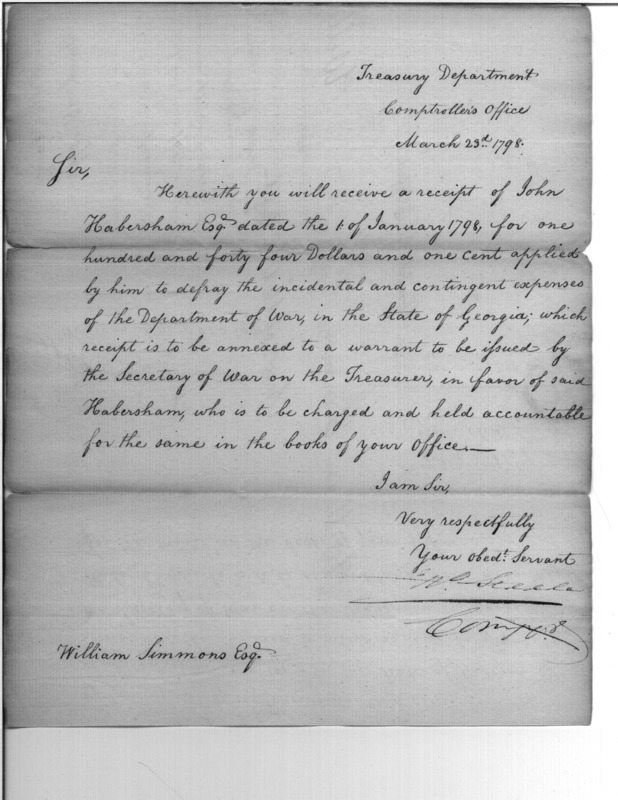 Treasury Department
Comptroller's Office
March 23d. 1798.
Sir,
Herewith you will receive a receipt of John
Habersham Esqr. dated the 1. of January 1798, for one
hundred and forty four Dollars and one cent applied
by him to defray the incidental and contingent expenses
of the Department of War, in the State of Georgia; which
receipt is to be annexed to a warrant to be issued by
the Secretary of War on the Treasurer, in favor of said
Habersham, who is to be charged and held accountable
for the same in the books of your Office.—
I am Sir,
Very respectfully
Your obedt. Servant
Steele
Comptr.
William Simmons Esqr.